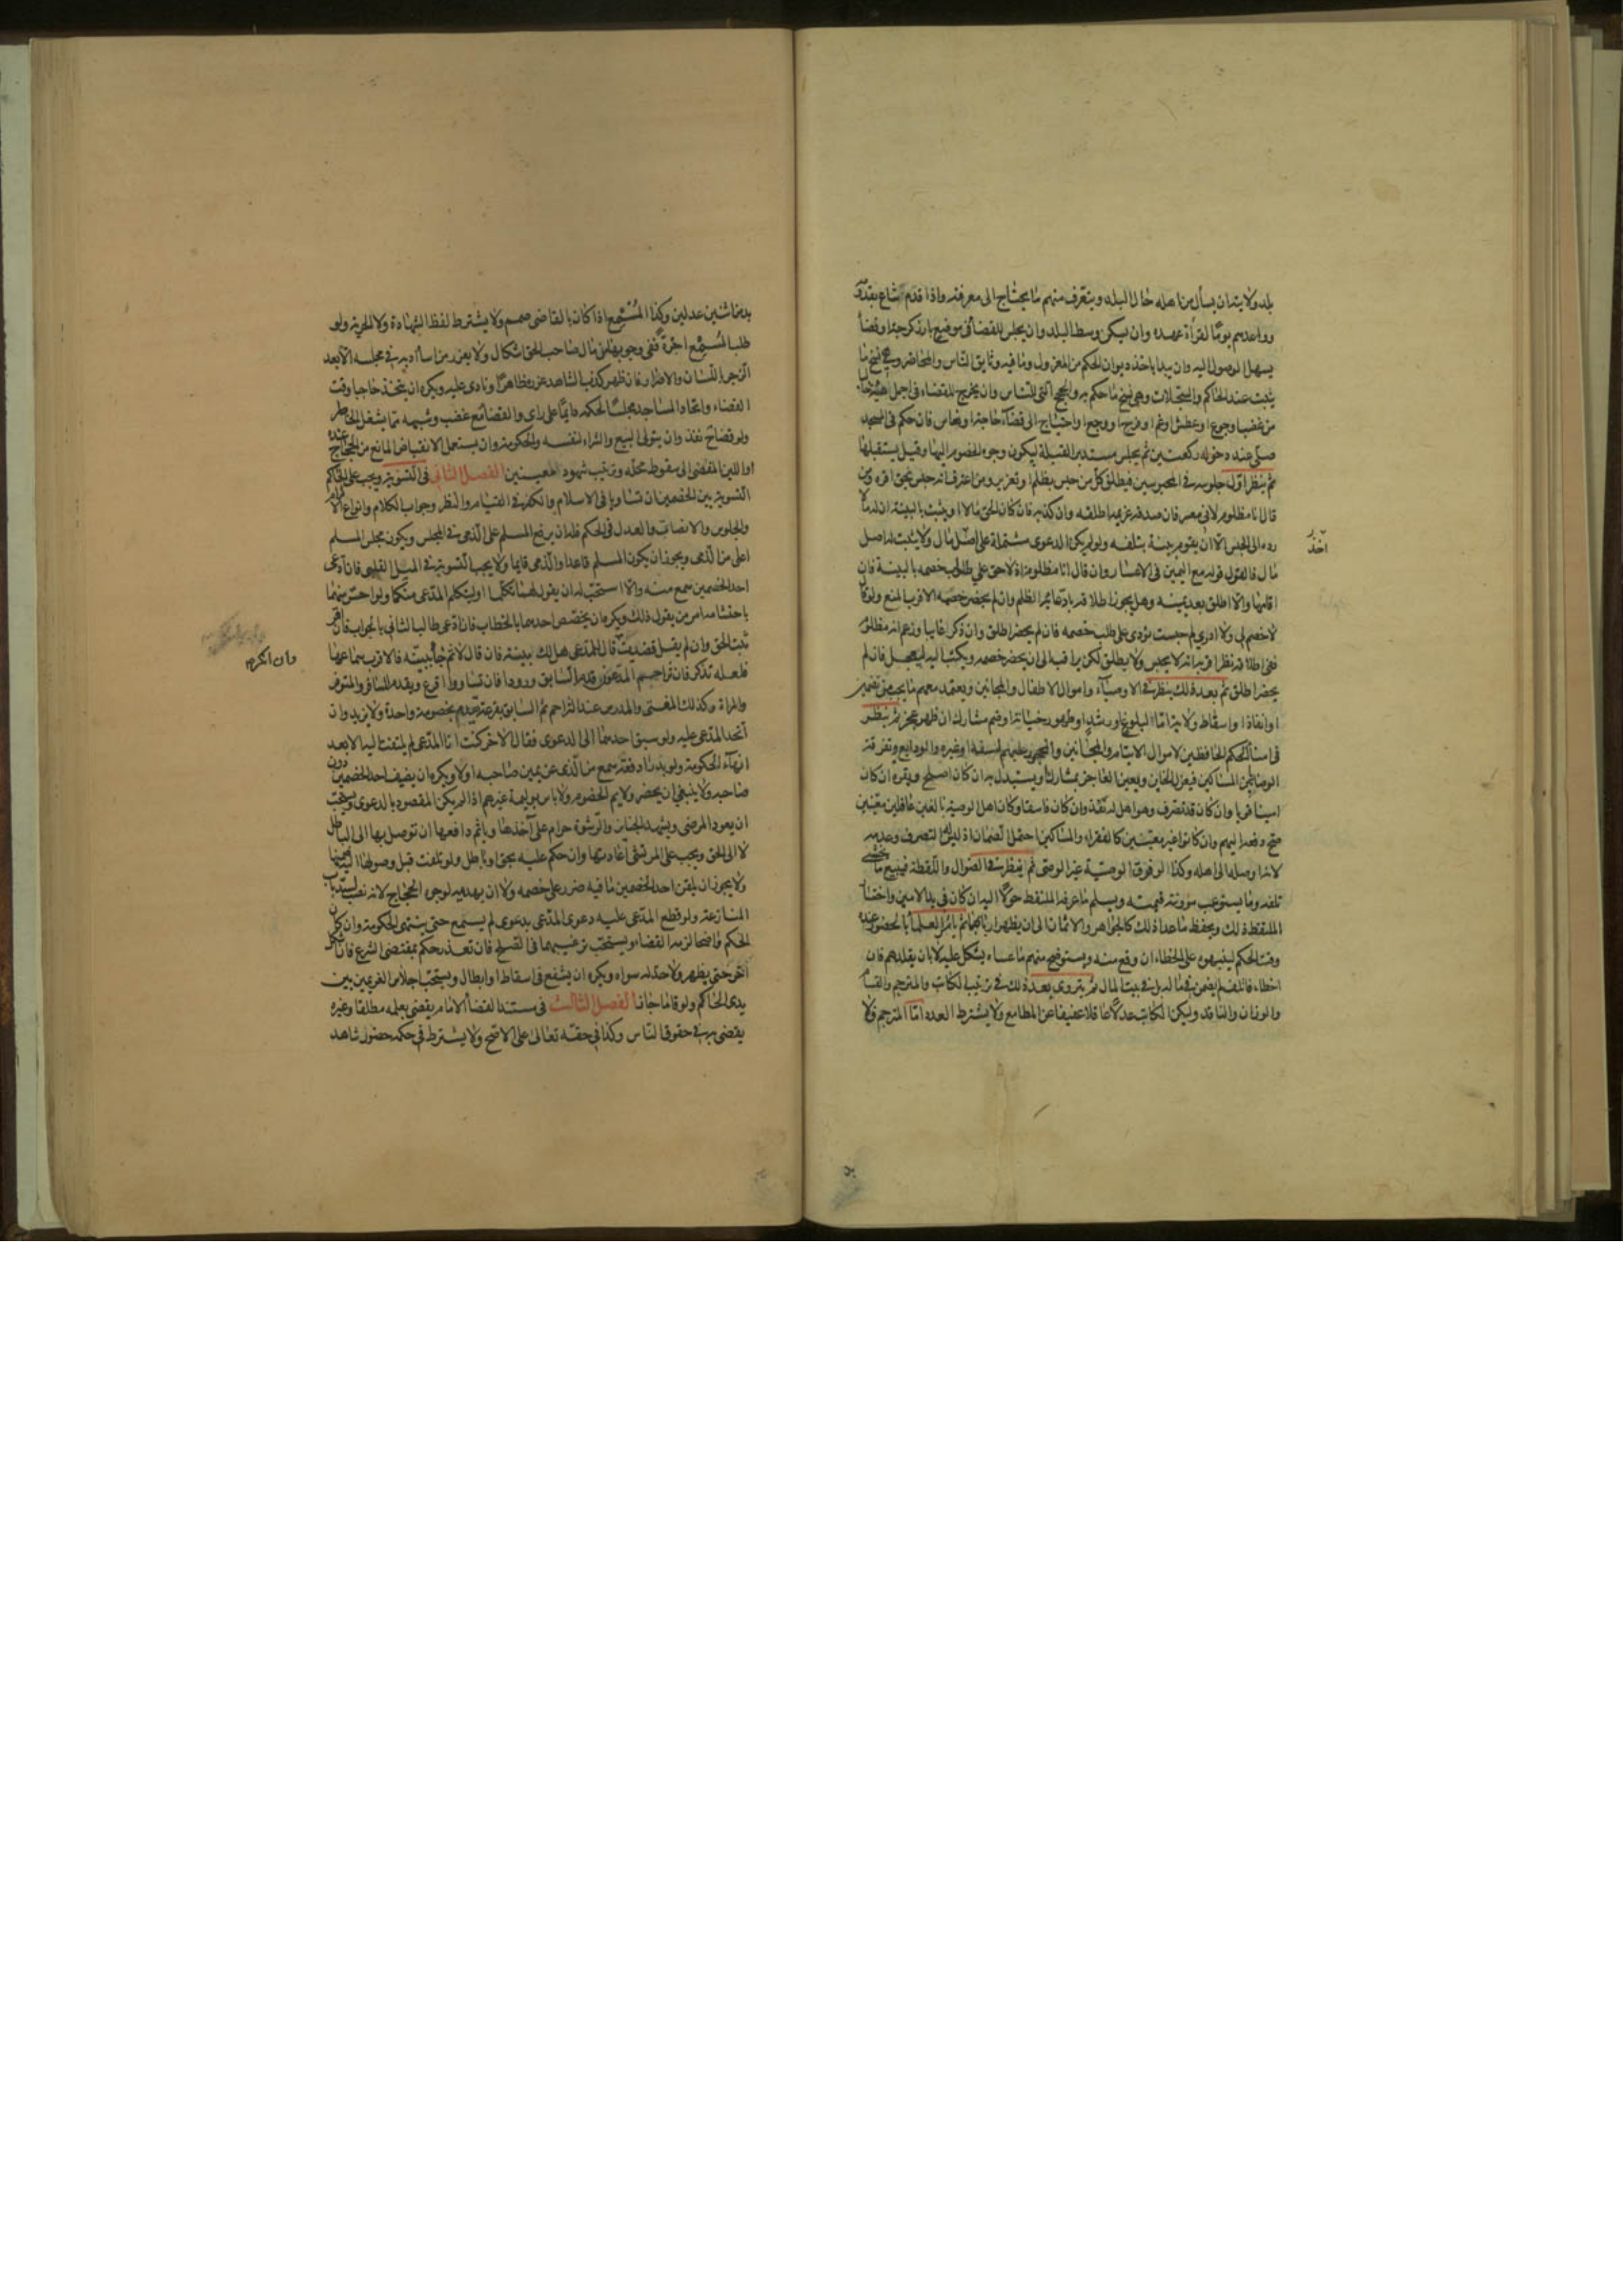 بلد ولايته ان يسأل من اهله حال البلد ويتعرف منهم ما يحتاج الى معرفته واذا قدم اشاع بقدومه
وواعدهم يوما لقراءة عهده وان يسكن وسط البلد وان يجلس للقضاء في موضع بارز كرحبة او فضاء
يسهل الوصول اليه وان يبدا باخذ ديوان الحكم من المعزول وما فيه وثايق الناس والمحاضر وهي نسخ ما
يثبت عند الحاكم والسجلات وهي نسخ ما حكم به والحجج التي للناس وان يخرج للقضاء في اجمل
من غضب او جوع او عطش او غم او فرح او وجع او احتياج الى قضاء حاجة او نعاس فان حكم في المسجد
صلى عند دخوله ركعتين ثم يجلس مستدبر القبلة ليكون وجوه الخصوم اليها وقيل يستقبلها
ثم ينظر اول جلوسه في المحبوسين فيطلق كل من حبس بظلم او تعزير ومن اعترف انه حبس بحق اقره ومن
قال انا مظلوم لاني معسر فان صدقه غريمه اطلقه وان كذبه فان كان الحق مالا او يثبت بالبينة ان له مالا
رده الى الحبس الا ان يقوم بينة بتلفه ولو لم يكن الدعوى مشتملة على اصل مال ولا يثبت له اصل
اخذ
مال فالقول قوله مع اليمين في الاعسار وان قال انا مظلوم اذ لا حق علي طالب خصمه بالبينة فان
اقامها والا اطلق بعد يمينه وهل يجوز اطلاقه بادعائه الظلم وان لم يحضر خصمه الاقرب المنع ولو قال
لا خصم لي ولا ادري لم حبست نودي على طلب خصمه فان لم يحضر اطلق وان ذكر غايبا وزعم انه مظلوم
ففي اطلاقه نظر اقربه انه لا يحبس ولا يطلق لكن يراقب الى ان يحضر خصمه ويكتب اليه ليعجل فان لم
يحضر اطلق ثم بعد ذلك ينظر في الاوصياء واموال الاطفال والمجانين ويعتمد معهم ما يجب من تضمين
او انفاذ او اسقاط ولاية اما البلوغ او رشد او ظهور خيانة او ضم مشارك ان ظهر عجز ثم ينظر
في امناء الحكم الحافظين لاموال الايتام والمجانين والمحجور عليهم لسفه او غيره والودايع وتفرقة
الوصايا بين المساكين فيعزل الخاين ويعين العاجز بمشارك او يستبدل به ان كان اصلح ويقره ان كان
امينا قويا وان كان قد تصرف وهو اهل له نفذ وان كان فاسقا وكان اهل الوصية بالغين عاقلين معينين
صح دفعه اليهم وان كانوا غير معينين كالفقراء والمساكين احتمل الضمان اذ ليس له التصرف وعدمه
لانه اوصله الى اهله وكذا لو فرق الوصية غير الوصي ثم ينظر في الضوال واللقطة فيبيع ما يخشى
تلفه وما يستوعب مؤونته قيمته ويسلم ما عرفه الملتقط حولا اليه ان كان في يد الامين واختار
الملتقط ذلك ويحفظ ما عدا ذلك كالجواهر والاثمان الى ان يظهر اربابها ثم يامر العلماء بالحضور عنده
وقت الحكم لينبهوه على الخطاء ان وقع منه ويستوضح منهم ما عساه يشكل عليه لا بان يقلدهم فان
اخطاء فاتلف لم يضمن في ماله بل في بيت المال ثم يتروى بعد ذلك في ترتيب الكاتب والمترجم والقسام
والوزان والناقد وليكن الكاتب عدلا عاقلا عفيفا عن المطامع ولا يشترط العدد اما المترجم فلا
بد من اثنين عدلين وكذا المسمع اذا كان بالقاضي صمم ولا يشترط لفظ الشهادة ولا الحرية ولو
طلب المسمع اجرة ففي وجوبها في مال صاحب الحق اشكال ولا يعزر من اساء ادبه في مجلسه الا بعد
الزجر باللسان والاصرار فان ظهر كذب الشاهد عزره ظاهرا ونادى عليه ويكره ان يتخذ حاجبا وقت
القضاء واتخاذ المساجد مجلسا لحكمه دايما على راي والقضاء مع غضب وشبهه مما يشغل الخاطر
ولو قضى ح نفذ وان يتولى البيع والشراء لنفسه والحكومة وان يستعمل الانقباض المانع من الحجاج عنده
او اللين المفضي الى سقوط محله وترتيب شهود المعينين الفصل الثاني في التسوية ويجب على الحاكم
التسوية بين الخصمين ان تساويا في الاسلام والكفر في القيام والنظر وجواب الكلام وانواع الاكرام
والجلوس والانصات والعدل في الحكم فله ان يرفع المسلم على الذمي في المجلس ويكون مجلس المسلم
اعلى من الذمي ويجوز ان يكون المسلم قاعدا والذمي قايما ولا يجب التسوية في الميل القلبي فان ادعى
احد الخصمين سمع منه والا استحب له ان يقول لهما تكلما او ليتكلم المدعي منكما ولو احس منهما
باحتشامه امر من يقول ذلك ويكره ان يخصص احدهما بالخطاب فان ادعى طالب الثاني بالجواب فان اقر
ثبت الحق وان لم يقل قضيت قال للمدعي هل لك بينة فان قال لا ثم جاء ببينة فالاقرب سماعها
وان انكر
فلعله تذكر فان تزاحم المدعون قدم السابق ورودا فان تساووا اقرع ويقدم المسافر المستوفز
والمراة وكذلك المفتي والمدرس عند التزاحم ثم السابق بقرعة يقدم بخصومة واحدة ولا يزيد وان
اتحد المدعى عليه ولو سبق احدهما الى الدعوى فقال الاخر كنت انا المدعي لم يلتفت اليه الا بعد
انهاء الحكومة ولو بدرا دفعة سمع من الذي عن يمين صاحبه اولا ويكره ان يضيف احد الخصمين دون
صاحبه ولا ينبغي ان يحضر ولايم الخصوم ولا باس بوليمة غيرهم اذا لم يكن المقصود بالدعوى ويستحب
ان يعود المرضى ويشهد الجنايز والرشوة حرام على آخذها وياثم دافعها ان توصل بها الى الباطل
لا الى الحق ويجب على المرتشي اعادتها وان حكم عليه بحق او باطل ولو تلفت قبل وصولها اليه ضمنها
ولا يجوز ان يلقن احد الخصمين ما فيه ضرر على خصمه ولا ان يهديه لوجوه الحجاج لانه نصب لسد باب
المنازعة ولو قطع المدعى عليه دعوى المدعي بدعوى لم يسمع حتى ينتهي الحكومة وان كان
الحكم واضحا لزمه القضاء ويستحب ترغيبهما في الصلح فان تعذر حكم بمقتضى الشرع فان اشكل
اخر حتى يظهر ولا حد له سواه ويكره ان يشفع في اسقاط او ابطال ويستحب اجلاس الغريمين بين
يدي الحاكم ولو قاما جاز الفصل الثالث في مستند القضاء الامام يقضي بعلمه مطلقا وغيره
يقضي به في حقوق الناس وكذا في حقه تعالى على الاصح ولا يشترط في حكمه حضور شاهد